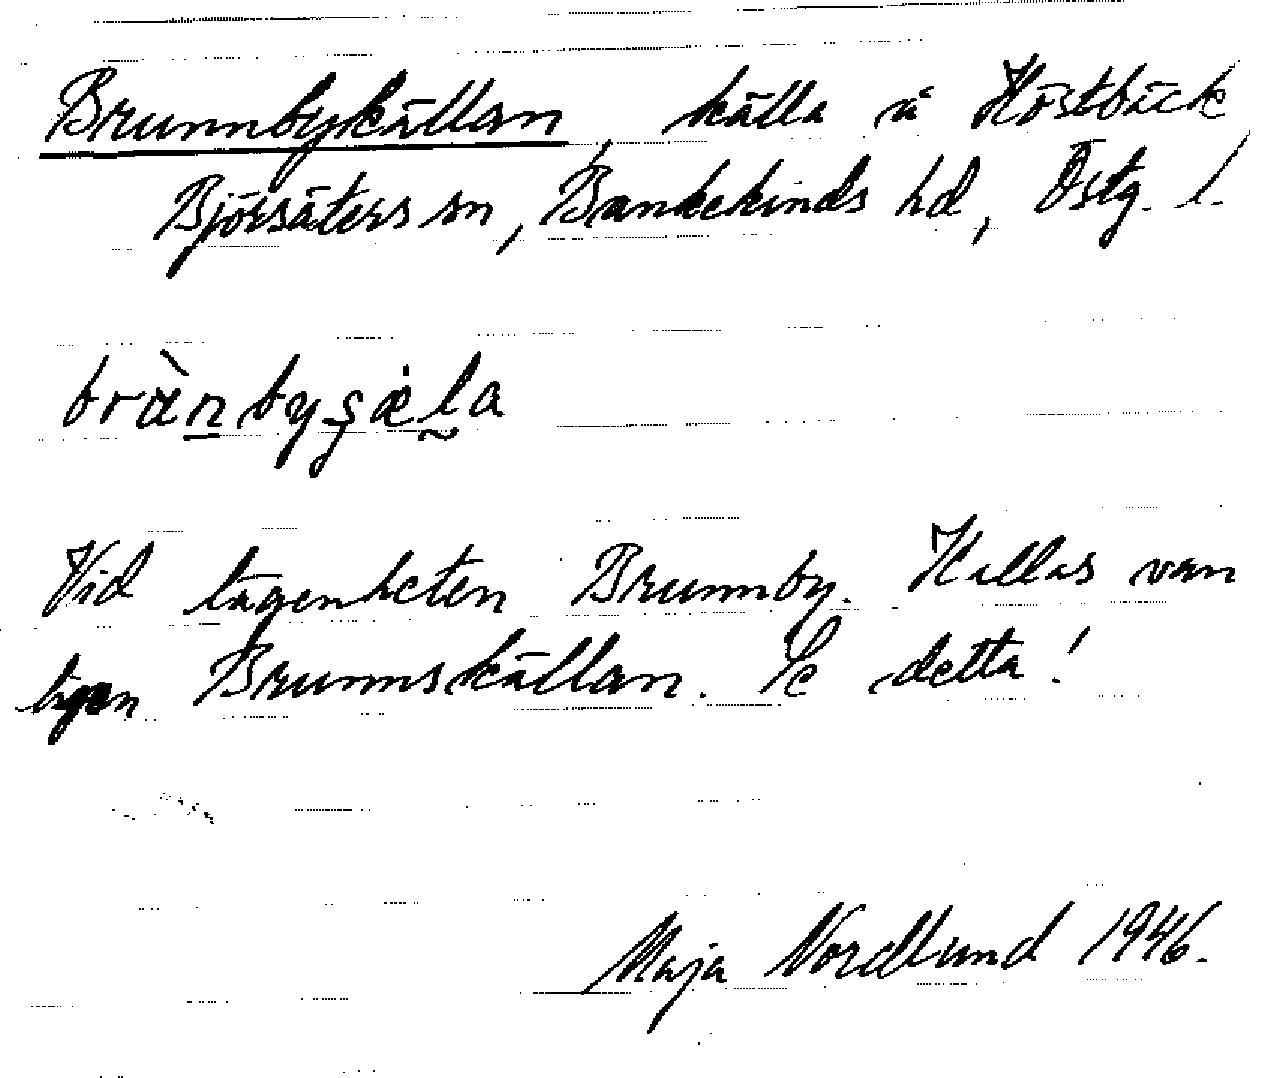 Brunnbykällan, källa å Höstbäck
Björsäters sn, Bankekinds hd, Östg. l.
brànbyȿæla
Vid lägenheten Brunnby. Kallas van
ligen Brunnskällan. Se detta!
Maja Nordlund 1946.